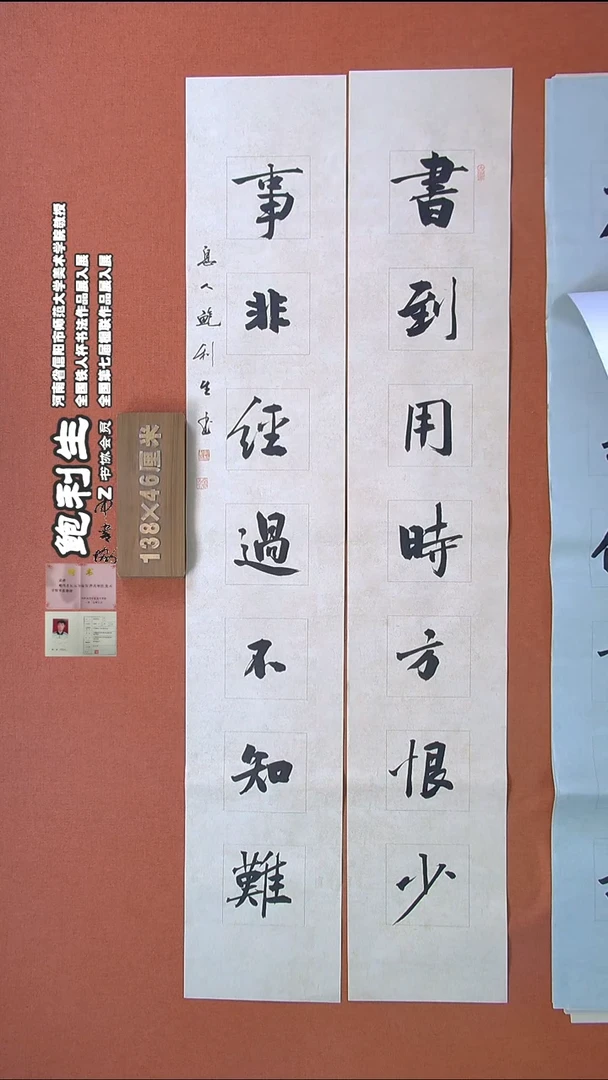 書到用時方恨少
事非經過不知難
息人鲍利生书
138×46厘米
河南省信阳市师范大学美术学院教授
全国铁人杯书法作品展入展
全国第七届楹联作品展入展
鲍利生
书协会员